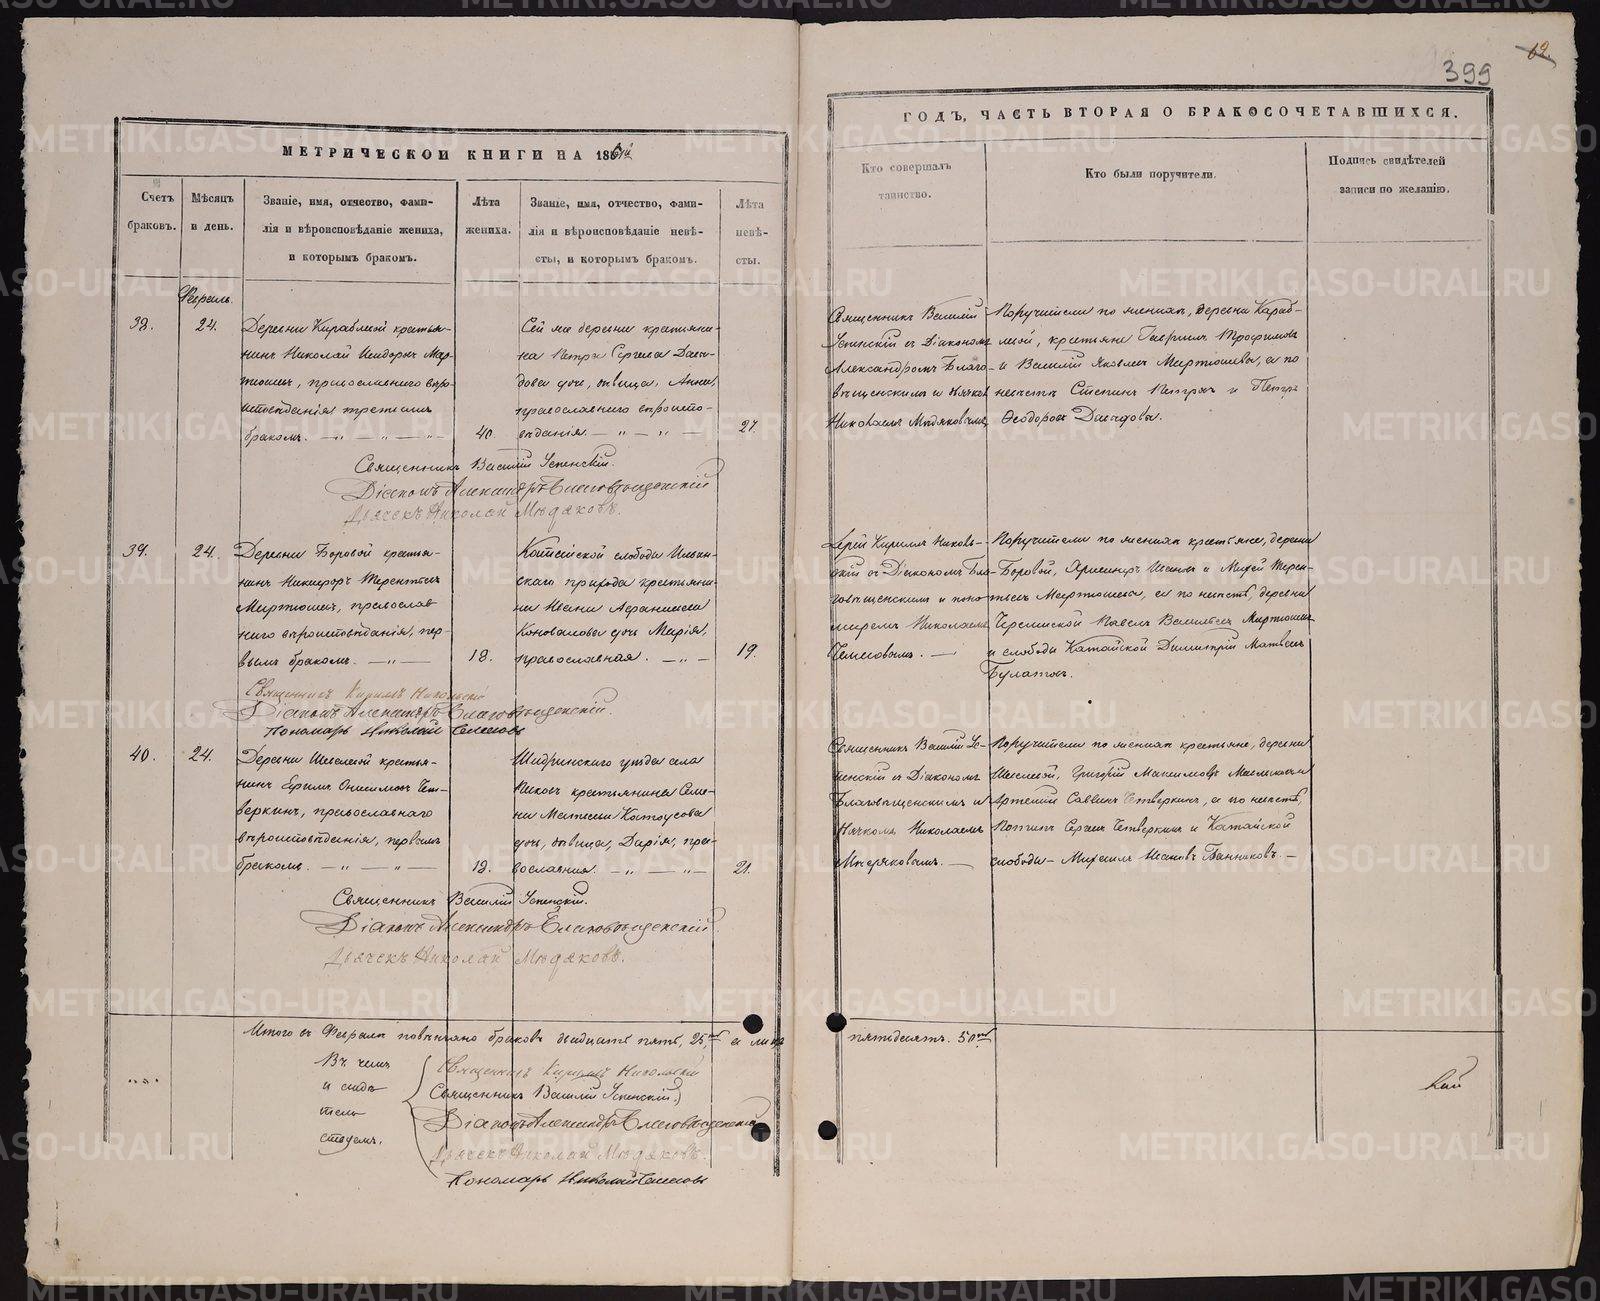 62.
399
МЕТРИЧЕСКОЙ КНИГИ НА 186
Счетъ браковъ.
Мѣсяцъ и день.
Званіе, имя, отчество, фами-
лія и вѣроисповѣданіе жениха,
и которымъ бракомъ.
Лѣта жениха.
Званіе, имя, отчество, фами-
лія и вѣроисповѣданіе невѣ-
сты, и которымъ бракомъ.
Лѣта невѣ-
сты.
ГОДЪ, ЧАСТЬ ВТОРАЯ О БРАКОСОЧЕТАВШИХСЯ.
Кто совершалъ
таинство.
Кто были поручители.
Подпись свидѣтелей
записи по желанію.
Февраль.
38.
24.
Деревни Кораблевой кресть-
нинъ Николай Исидоровъ Мар-
тюшевъ, православнаго вѣро-
исповѣданія третьимъ
бракомъ.
40.
Сей же деревни крестьяни-
на Петра Сергѣева Давы-
дова дочь, дѣвица, Анна,
православнаго вѣроиспо-
вѣданія.
27.
Священникъ Василій
Успенскій съ Діакономъ
Александромъ Благо-
вѣщенскимъ и дьячкомъ
Николаемъ Мидяковымъ
Поручители по женихѣ, деревни Караб-
левой, крестьяне Гавріилъ Трофимовъ
и Василій Яковлевъ Мартюшевы, а по
невѣстѣ Степанъ Петровъ и Петръ
Ѳеодоровъ Давыдовы.
Священникъ Василій Успенскій.
Діаконъ Александръ Благовѣщенскій
Дьячекъ Николай Мидяковъ.
39.
24.
Деревни Боровой крестья-
нинъ Никифоръ Терентьевъ
Мартюшевъ, православ
наго вѣроисповѣданія, пер-
вымъ бракомъ.
18.
Катайской слободы Ильин-
скаго прихода крестьяни-
на Ивана Афанасьева
Коновалова дочь Марія,
православная.
19.
Іерей Кириллъ Николь-
скій съ Діакономъ Бла-
говѣщенскимъ и поно-
маремъ Николаемъ
Поручители по женихѣ крестьяне, деревни
Боровой, Иванъ и Терен-
тьевъ Мартюшевы, а по невѣстѣ, деревни
Черемисской Павелъ Васильевъ Мартюшевъ
и слободы Катайской Димитрій Матвѣевъ
Булатовъ.
Священникъ Кириллъ Никольскій
Діаконъ Александръ Благовѣщенскій.
Пономарь Николай
40.
24.
Деревни Шевелевой крестья-
нинъ Ефимъ Онисимовъ Чет-
веркинъ, православнаго
вѣроисповѣданія, первымъ
бракомъ.
Шадринскаго уѣзда села
крестьянина Семе-
на Матвѣева
дочь, дѣвица, Дарія, пра-
вославная.
21.
Священникъ Василій Ус-
пенскій съ Діакономъ
Благовѣщенскимъ и
Дьячкомъ Николаемъ
Мидяковымъ.
Поручители по женихѣ крестьяне, деревни
Шевелевой, Григорій Максимовъ
Артемій Саввинъ Четверкинъ, а по невѣстѣ,
Сергѣевъ Четверкинъ и Катайской
слободы Михаилъ Ивановъ Банниковъ.
Священникъ Василій Успенскій.
Діаконъ Александръ Благовѣщенскій
Дьячекъ Николай Мидяковъ.
Итого въ Февралѣ повѣнчано браковъ двадцать пять, 25, а лицъ
пятьдесятъ. 50
Въ чемъ
и свидѣ
тель
ствуемъ.
Священникъ Кириллъ Никольскій
Священникъ Василій Успенскій
Діаконъ Александръ Благовѣщенскій
Дьячекъ Николай Мидяковъ.
Пономарь Николай
METRIKI.GASO-URAL.RU